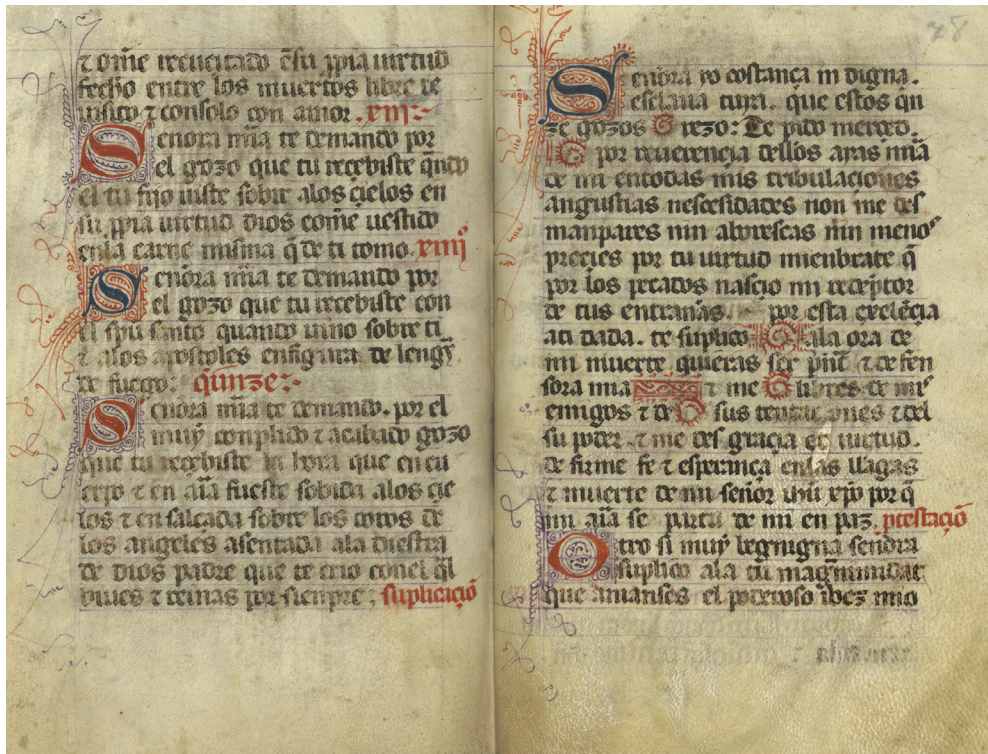 τ om̄e recucitado ēsu p̄pia uirtud
fecho entre los muertos libre te
uisito τ consolo con amor. xiij:~
Senora mīa te demando por
el gozo que tu reçebiste q̄ndo
el tu fijo uiste sobir alos çielos en
su p̄pia uirtud dios com̄e uestido
enla carne misma q̄ de ti tomo. xiiijº
Senora mīa te demando por
el gozo que tu recebiste con
el sp̄u santo quando uino sobre ti
τ alos apostoles enfigura de leng̃
de fuego: q̄inze:~
Senora mīa te demando. por el
muy conplido τ acabado gozo
que tu recebiste la hora que en cu
erpo τ en aīa fueste sobida alos çie
los τ en salçada sobre los coros de
los angeles asentada ala diestra
de dios padre que te crio conel q̄l
biues τ reinas por sienpre; suplicaçiō
Senora yo costança in digna.
esclaua tuya. que estos qn
ze gozos rezo: Te pido merçed.
por reuerençia dellos ayas mīa
de mi entodas mis tribulaçiones
angustias nesçesidades non me des
manpares nin aborrescas nin meno
preçies por tu uirtud mienbrate q̄
por los pecados nasçio mi redeptor
de tus entrañas por esta exçelēçia
ati dada. te suplico ala ora de
mi muerte quieras ser p̄nt̄ τ defen
sora mia τ me libres de mi
emigos τ de sus tentaciones τ del
su poder. τ me des graçia et uirtud.
de firme fe τ esperança enlas llagas
τ muerte de mi señor ih̄u xp̄o por q̄
mi aīa se parta de mi en paz. ptestaçiō
Otro si muy begnigna senora
suplico ala tu magnimidat
que amanses el poderoso ibez mio
78